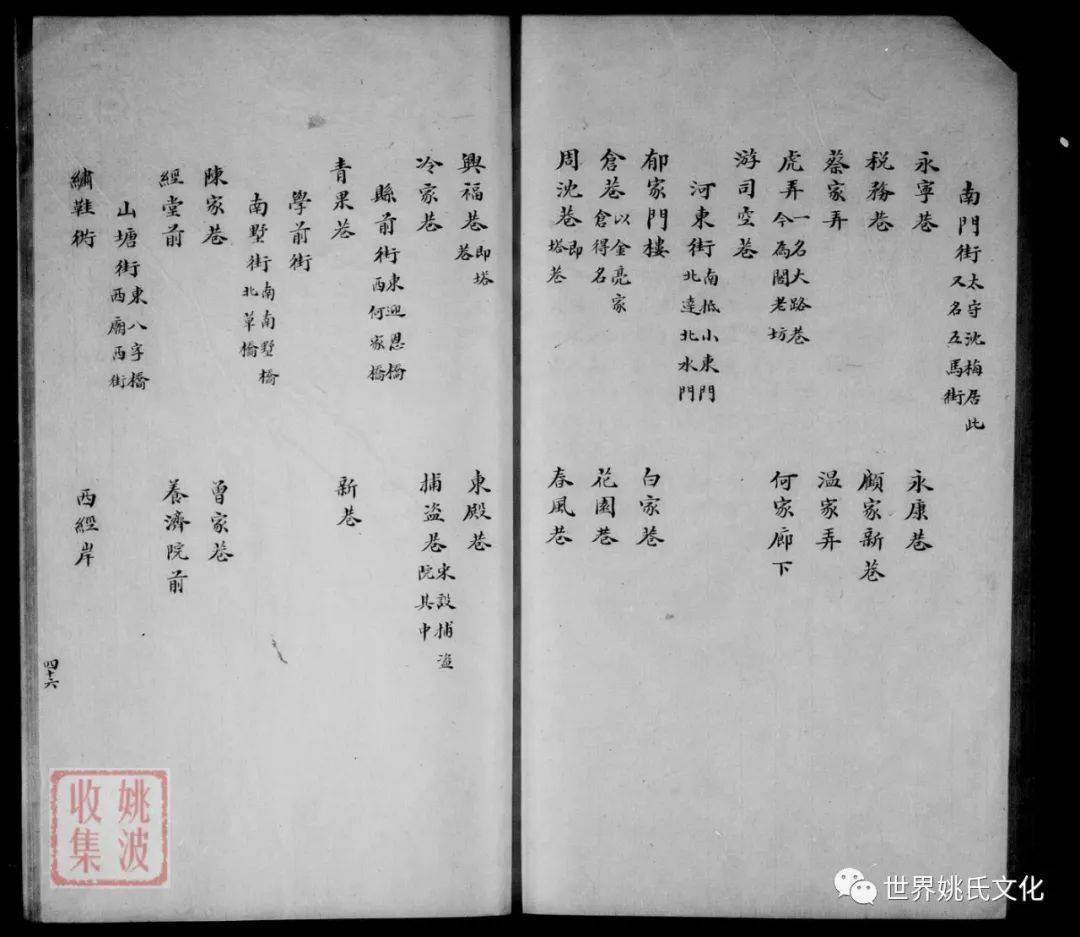 南門街太守沈梅居此又名五馬街
永寧巷 永康巷
税務巷 顧家新巷
蔡家弄 温家弄
虎弄一名大路巷今為閣老坊 何家廊下
游司空巷
河東街南抵小東門北達北水門
郁家門樓 白家巷
倉巷以金亮家倉得名 花園巷
周沈巷即塔巷 春風巷
興福巷即塔巷 東殿巷
冷家巷 捕盗巷宋設捕盗院其中
縣前街東迎恩橋西何家橋
青果巷 新巷
學前街
南墅街南南墅橋北草橋
陳家巷 曾家巷
經堂前 養濟院前
山塘街東八字橋西廟西街
繡鞋衖 西經岸
四十六
姚波收集
世界姚氏文化